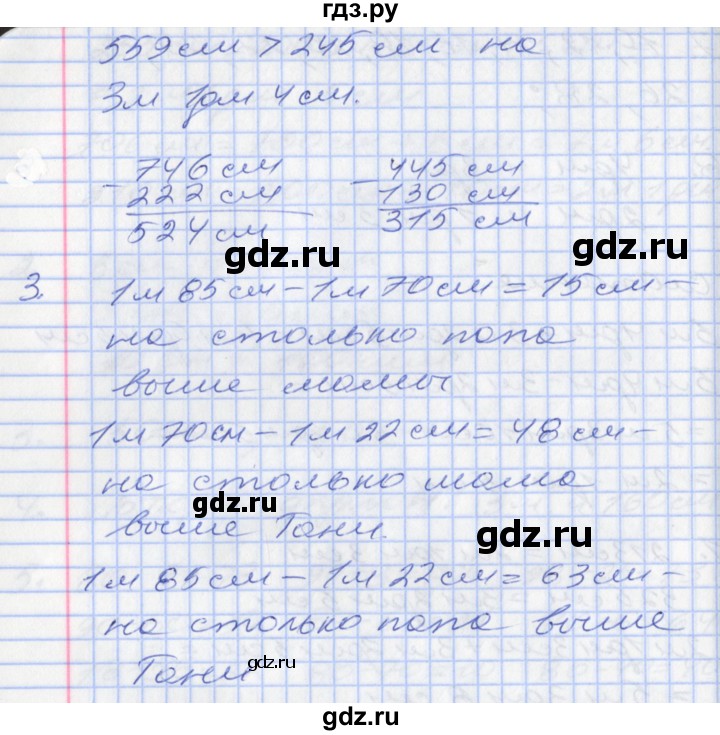 гдз.ру
559 см > 245 см на
3м 1дм 4 см.
- 746 см
222 см
524 см
- 445 см
130 см
315 см
gdz.ru
gdz.ru
3. 1м 85см - 1м 70см = 15см -
на столько папа
выше мамы
1м 70см - 1м 22см = 48см -
на столько мама
gdz.ru
выше Тани.
gdz.ru
1м 85см - 1м 22см = 63см -
на столько папа выше
Тани
gdz.ru
gdz.ru